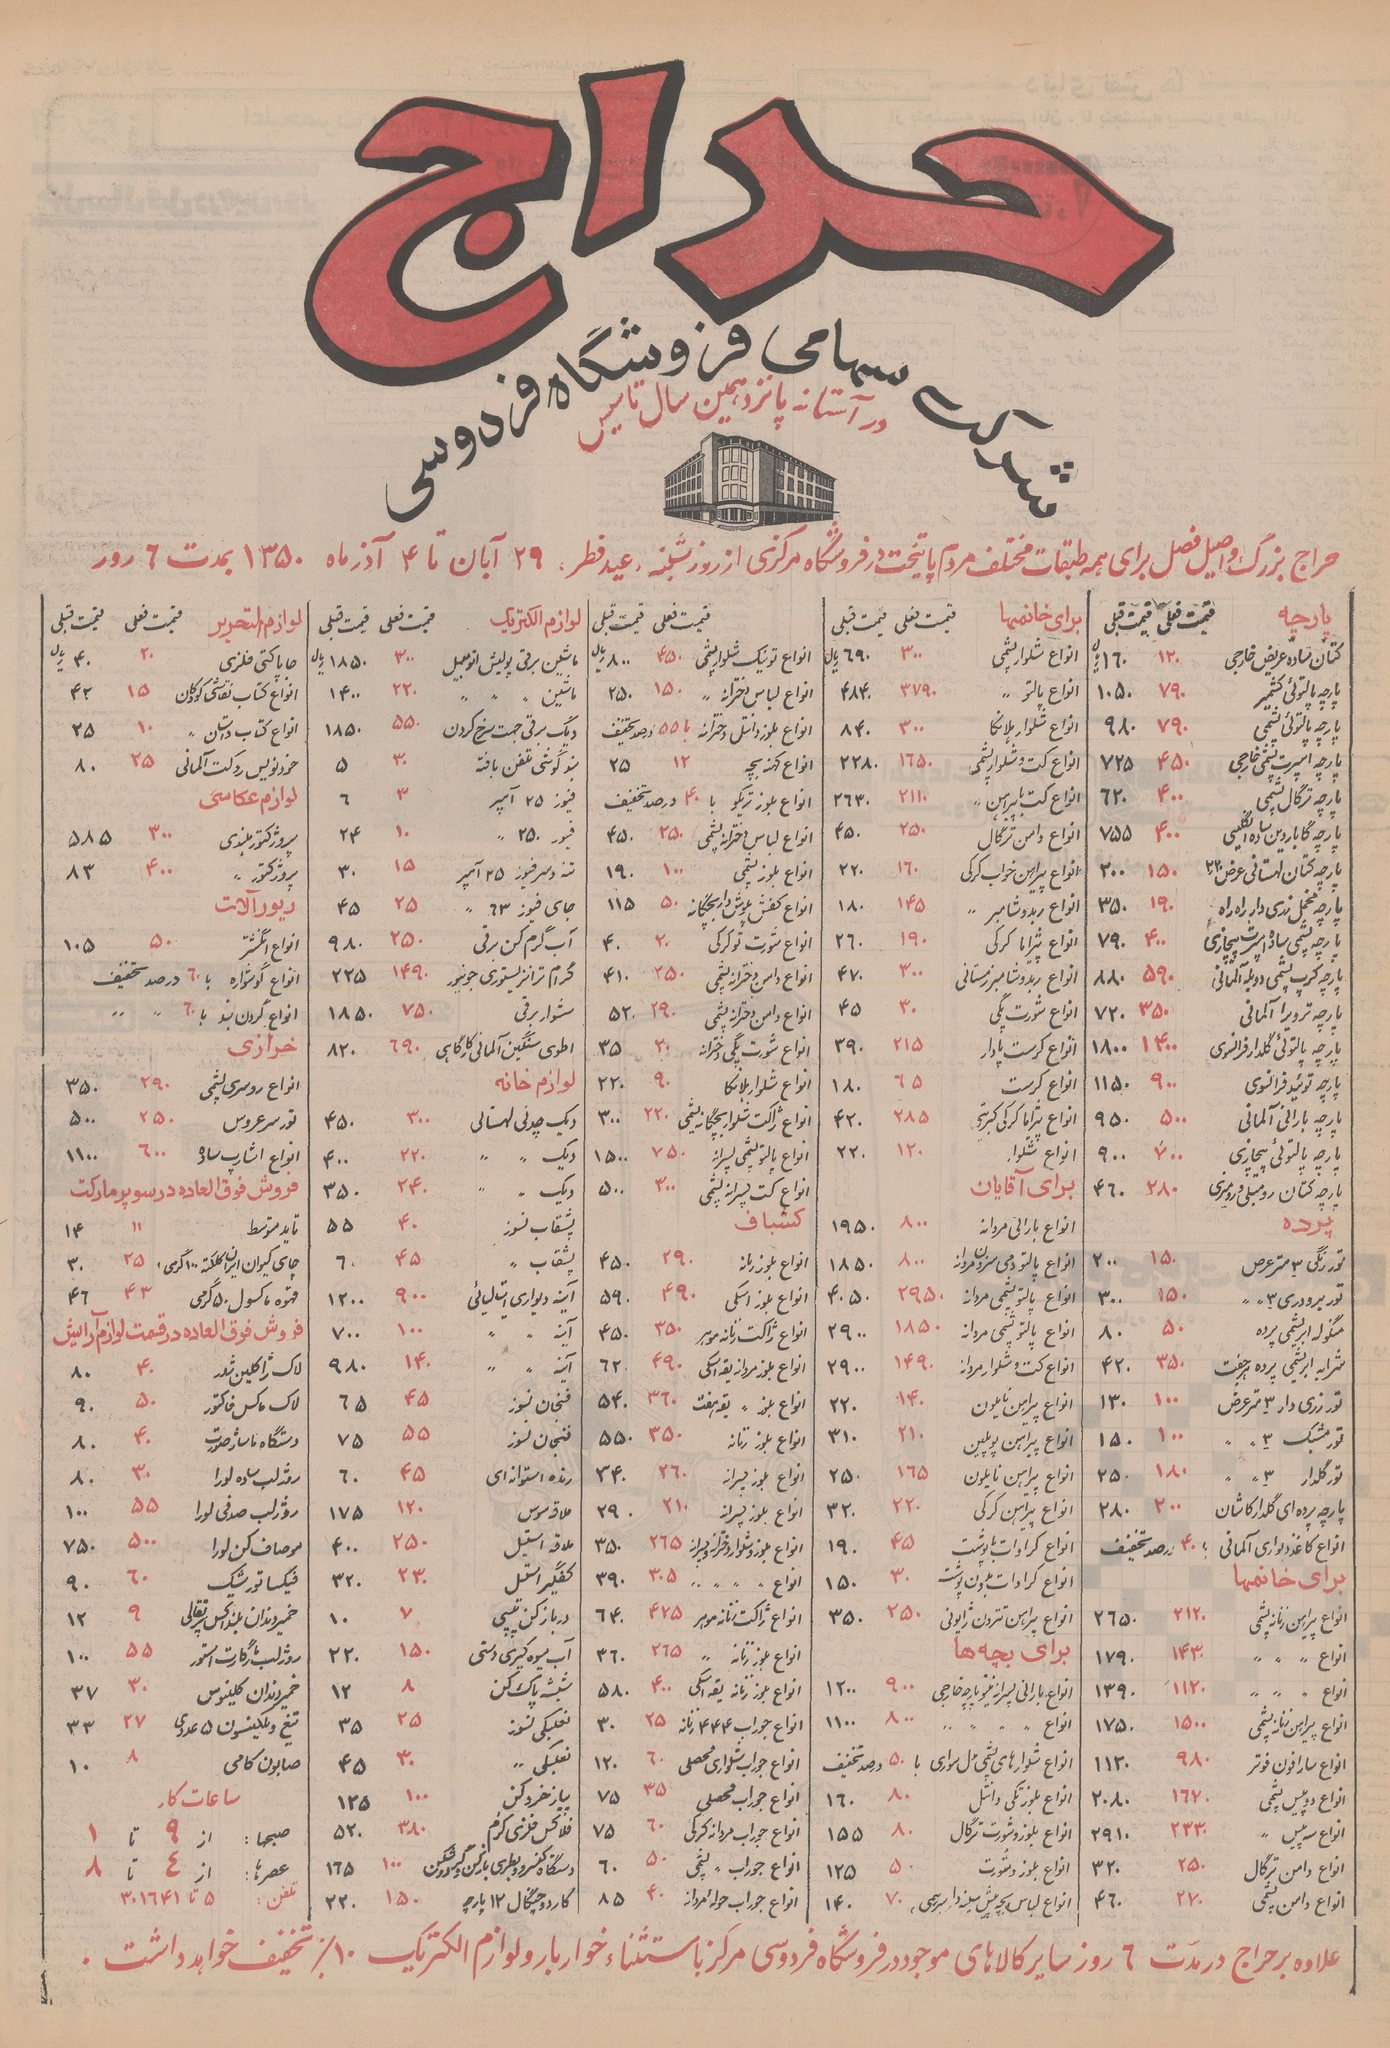 حراج
شرکت سهامی فروشگاه فردوسی
در آستانه پانزدهمین سال تاسیس
حراج بزرگ و اصیل فصل برای همه طبقات مختلف مردم پایتخت در فروشگاه مرکزی از روز شنبه، عید فطر، ۲۹ آبان تا ۴ آذر ماه ۱۳۵۰ بمدت ۶ روز
پارچه قیمت فعلی قیمت قبلی
کتان ساده عریض خارجی ۱۲۰ ۱۶۰ ریال
پارچه پالتوئی کشمیر ۷۹۰ ۱۰۵۰
پارچه پالتوئی پشمی ۷۹۰ ۹۸۰
پارچه اسپرت پشمی خارجی ۴۵۰ ۷۲۵
پارچه ترگال پشمی ۴۰۰ ۶۲۰
پارچه گاباردین ساده انگلیسی ۴۰۰ ۷۵۵
پارچه کتان لهستانی عرض ۲۲۰ ۱۵۰ ۲۰۰
پارچه مخمل زری دار راه راه ۱۹۰ ۳۵۰
پارچه پشمی ساده اسپرت پیچازی ۴۰۰ ۷۹۰
پارچه کرپ پشمی دوبله آلمانی ۵۹۰ ۸۸۰
پارچه ترویرا آلمانی ۳۵۰ ۷۲۰
پارچه پالتوئی گلدار فرانسوی ۱۴۰۰ ۱۸۰۰
پارچه توئید فرانسوی ۹۰۰ ۱۱۵۰
پارچه بارانی آلمانی ۵۰۰ ۹۵۰
پارچه پالتوئی پیچازی ۷۰۰ ۹۰۰
پارچه کتان رومبلی و رومیزی ۲۸۰ ۴۶۰
پرده
تور رنگی ۳ متر عرض ۱۵۰ ۲۰۰
تور برودری ۳ " " ۱۵۰ ۳۰۰
منگوله ابریشمی پرده ۵۰ ۸۰
شرابه ابریشمی پرده هر جفت ۳۵۰ ۴۲۰
تور زری دار ۳ متر عرض ۱۰۰ ۱۳۰
تور مشبک ۳ " " ۱۰۰ ۱۵۰
تور گلدار ۳ " " ۱۸۰ ۲۵۰
پارچه پرده ای گلدار کاشان ۲۰۰ ۲۸۰
انواع کاغذ دیواری آلمانی با ۴۰ درصد تخفیف
برای خانمها
انواع پیراهن زنانه پشمی ۲۱۲۰ ۲۶۵۰
انواع " " " ۱۴۳۰ ۱۷۹۰
انواع " " " ۱۱۲۰ ۱۳۹۰
انواع پیراهن زنانه پشمی ۱۵۰۰ ۱۷۵۰
انواع سارافون فوتر ۹۸۰ ۱۱۲۰
انواع دوپیس پشمی ۱۶۷۰ ۲۰۸۰
انواع سه پیس " ۲۳۳۰ ۲۹۱۰
انواع دامن ترگال ۲۵۰ ۳۲۰
انواع دامن پشمی ۲۲۰ ۴۶۰
برای خانمها قیمت فعلی قیمت قبلی
انواع شلوار پشمی ۳۰۰ ۶۹۰ ریال
انواع پالتو " ۳۷۹۰ ۴۸۴۰
انواع شلوار بلانکا ۳۰۰ ۸۴۰
انواع کت و شلوار پشمی ۱۶۵۰ ۲۲۸۰
انواع کت با پیراهن " ۲۱۱۰ ۲۶۳۰
انواع دامن ترگال ۲۵۰ ۴۵۰
انواع پیراهن خواب کرکی ۱۶۰ ۲۲۰
انواع ربدوشامبر " ۱۴۵ ۱۸۰
انواع پیژاما کرکی ۱۹۰ ۲۶۰
انواع ربدوشامبر زمستانی ۳۰۰ ۴۷۰
انواع شورت پگی ۳۰ ۴۵
انواع کرست پادار ۲۱۵ ۳۹۰
انواع کرست ۶۵ ۱۸۰
انواع پیژاما کرکی کبریتی ۲۸۵ ۴۲۰
انواع شلوار ۱۲۰ ۲۲۰
برای آقایان
انواع بارانی مردانه ۸۰۰ ۱۹۵۰
انواع پالتو دمی سزون مردانه ۸۰۰ ۱۸۵۰
انواع پالتو پشمی مردانه ۲۹۵۰ ۴۰۵۰
انواع پالتو پشمی مردانه ۱۸۵۰ ۲۹۰۰
انواع کت و شلوار مردانه ۱۴۹۰ ۲۹۰۰
انواع پیراهن نایلون ۱۴۰ ۲۲۰
انواع پیراهن پوپلین ۲۱۰ ۳۱۰
انواع پیراهن نایلون ۱۶۵ ۲۵۰
انواع پیراهن کرکی ۲۲۰ ۳۲۰
انواع کراوات با پوشت ۴۵ ۱۹۰
انواع کراوات بدون پوشت ۳۰ ۱۵۰
انواع پیراهن تترون ژاپونی ۲۵۰ ۳۵۰
برای بچه ها
انواع بارانی پسرانه پارچه خارجی ۹۰۰ ۱۲۰۰
انواع " " " ۸۰۰ ۱۱۰۰
انواع شلوارهای پشمی مدل سواری با ۵۰ درصد تخفیف
انواع بلوز تکی دانتل ۸۰ ۱۶۰
انواع بلوز و شورت ترگال ۸۰ ۱۵۵
انواع بلوز و شورت ۵۰ ۱۲۵
انواع لباس بچه پیش سینه دار سرهمی ۷۰ ۱۴۰
قیمت فعلی قیمت قبلی
انواع تونیک شلوار پشمی ۴۵۰ ۸۰۰ ریال
انواع لباس دخترانه " ۱۵۰ ۲۵۰
انواع بلوز دانتل دخترانه با ۵۵ درصد تخفیف
انواع کهنه بچه ۱۲ ۲۵
انواع بلوز تریکو با ۴۰ درصد تخفیف
انواع لباس دخترانه پشمی ۲۵۰ ۴۵۰
انواع بلوز پشمی ۱۰۰ ۱۹۰
انواع کفش پاپوش دار بچگانه ۵۰ ۱۱۵
انواع شورت توکرکی ۲۰ ۴۰
انواع دامن دخترانه پشمی ۲۵۰ ۴۱۰
انواع دامن دخترانه پشمی ۲۹۰ ۵۲۰
انواع شورت پگی دخترانه ۲۰ ۳۵
انواع شلوار بلانکا ۹۰ ۲۲۰
انواع ژاکت شلوار بچگانه پشمی ۲۲۰ ۳۰۰
انواع پالتو پشمی پسرانه ۷۵۰ ۱۵۰۰
انواع کت پسرانه پشمی ۳۰۰ ۵۰۰
کشباف
انواع بلوز زنانه ۲۹۰ ۴۵۰
انواع بلوز اسکی ۴۹۰ ۵۹۰
انواع ژاکت زنانه موهر ۳۵۰ ۴۵۰
انواع بلوز مردانه یقه اسکی ۴۹۰ ۶۲۰
انواع بلوز " یقه هفت ۳۶۰ ۵۴۰
انواع بلوز زنانه ۳۵۰ ۵۵۰
انواع بلوز پسرانه ۲۶۰ ۳۴۰
انواع بلوز پسرانه ۲۱۰ ۲۹۰
انواع بلوز و شلوار دخترانه و پسرانه ۲۶۵ ۳۵۰
انواع " " " " ۳۰۵ ۳۹۰
انواع ژاکت زنانه موهر ۴۲۵ ۶۴۰
انواع بلوز زنانه " ۲۶۵ ۳۶۰
انواع بلوز زنانه یقه اسکی ۴۰۰ ۵۸۰
انواع جوراب ۴۴۴ زنانه ۲۵ ۳۰
انواع جوراب شلواری محصلی ۶۰ ۱۲۰
انواع جوراب محصلی ۳۵ ۷۵
انواع جوراب مردانه کرکی ۶۰ ۷۵
انواع جوراب " پشمی ۵۰ ۶۰
انواع جوراب حوله مردانه ۴۰ ۸۵
لوازم الکتریک قیمت فعلی قیمت قبلی
ماشین برقی پولیش اتومبیل ۳۰۰ ۱۸۵۰ ریال
ماشین " " " ۲۲۰ ۱۴۰۰
دیگ برقی جهت سرخ کردن ۵۵۰ ۱۸۵۰
بند گوشی تلفن بافته ۳۰ ۵
فیوز ۲۵ آمپر ۳ ۶
فیوز ۲۵۰ " ۱۰ ۲۴
تنه و سر فیوز ۲۵ آمپر ۱۵ ۳۰
جای فیوز ۶۳ " ۲۵ ۴۵
آب گرم کن برقی ۲۵۰ ۹۸۰
گرام ترانزیستوری جونیور ۱۴۹۰ ۲۲۵
سشوار برقی ۷۵۰ ۱۸۵۰
اطوی سنگین آلمانی کارگاهی ۶۹۰ ۸۲۰
لوازم خانه
دیگ چدنی لهستانی ۳۰۰ ۴۵۰
دیگ " " ۲۲۰ ۴۰۰
دیگ " " ۲۴۰ ۳۵۰
بشقاب نسوز ۴۰ ۵۵
بشقاب " ۴۵ ۶۰
آینه دیواری ایتالیائی ۹۰۰ ۱۲۰۰
آینه " " ۱۰۰ ۷۰۰
آینه " " ۱۴۰ ۹۸۰
فنجان نسوز ۴۵ ۶۵
فنجان نسوز ۵۵ ۷۵
رنده استوانه ای ۴۵ ۶۰
ملاقه سوس ۱۲۰ ۱۷۵
ملاقه استیل ۲۵۰ ۴۰۰
کفگیر استیل ۲۳۰ ۳۲۰
در باز کن تیپی ۷ ۱۰
آب میوه گیری دستی ۱۵۰ ۲۲۰
شیشه پاک کن ۸ ۱۲
نعلبکی نسوز ۲۵ ۳۵
نعلبکی " ۳۰ ۴۵
پیاز خردکن ۱۰۰ ۱۲۵
فلاکس فلزی کرم ۳۸۰ ۵۲۰
دستگاه کنسرو و بطری بازکن و گردوشکن ۱۰۰ ۱۶۵
کارد و چنگال ۱۲ پارچه ۱۵۰ ۲۲۰
لوازم التحریر قیمت فعلی قیمت قبلی
جا پاکتی فلزی ۲۰ ۴۰ ریال
انواع کتاب نقاشی کودکان ۱۵ ۴۲
انواع کتاب داستان " ۱۰ ۲۵
خودنویس روکت آلمانی ۲۵ ۸۰
لوازم عکاسی
پروژکتور بلندی ۳۰۰ ۵۸۵
پروژکتور " ۴۰۰ ۸۳
زیورآلات
انواع انگشتر ۵۰ ۱۰۵
انواع گوشواره با ۶۰ درصد تخفیف
انواع گردن بند با ۶۰ " "
خرازی
انواع روسری پشمی ۲۹۰ ۳۵۰
تور سر عروس ۲۵۰ ۵۰۰
انواع اشارپ ساده ۶۰۰ ۱۱۰۰
فروش فوق العاده در سوپر مارکت
تاید متوسط ۱۱ ۱۴
چای کیوان ایران کلکته ۱۰۰ گرمی ۲۵ ۳۰
قهوه ماکسول ۵۰ گرمی ۴۳ ۴۶
فروش فوق العاده در قسمت لوازم آرایش
لاک ژاکلین تندر ۴۰ ۸۰
لاک ماکس فاکتور ۵۰ ۹۰
دستگاه ماساژ صورت ۴۰ ۸۰
روژلب ساده لورا ۳۰ ۸۰
روژلب صدفی لورا ۵۵ ۱۰۰
مو صاف کن لورا ۵۰۰ ۷۵۰
فیکساتور شیک ۶۰ ۹۰
خمیر دندان بلنداکس پرتقالی ۹ ۱۲
روژلب مارگارت استور ۵۵ ۱۰۰
خمیر دندان کلینوس ۳۰ ۳۷
تیغ ویلکینسون ۵ عددی ۲۷ ۳۳
صابون کامی ۸ ۱۰
ساعات کار
صبحها: از ۹ تا ۱
عصرها: از ۴ تا ۸
تلفن: ۵ تا ۳۰۱۶۴۱
علاوه بر حراج در مدت ۶ روز سایر کالاهای موجود در فروشگاه فردوسی مرکز باستثناء خواربار و لوازم الکتریک ۱۰٪ تخفیف خواهد داشت.